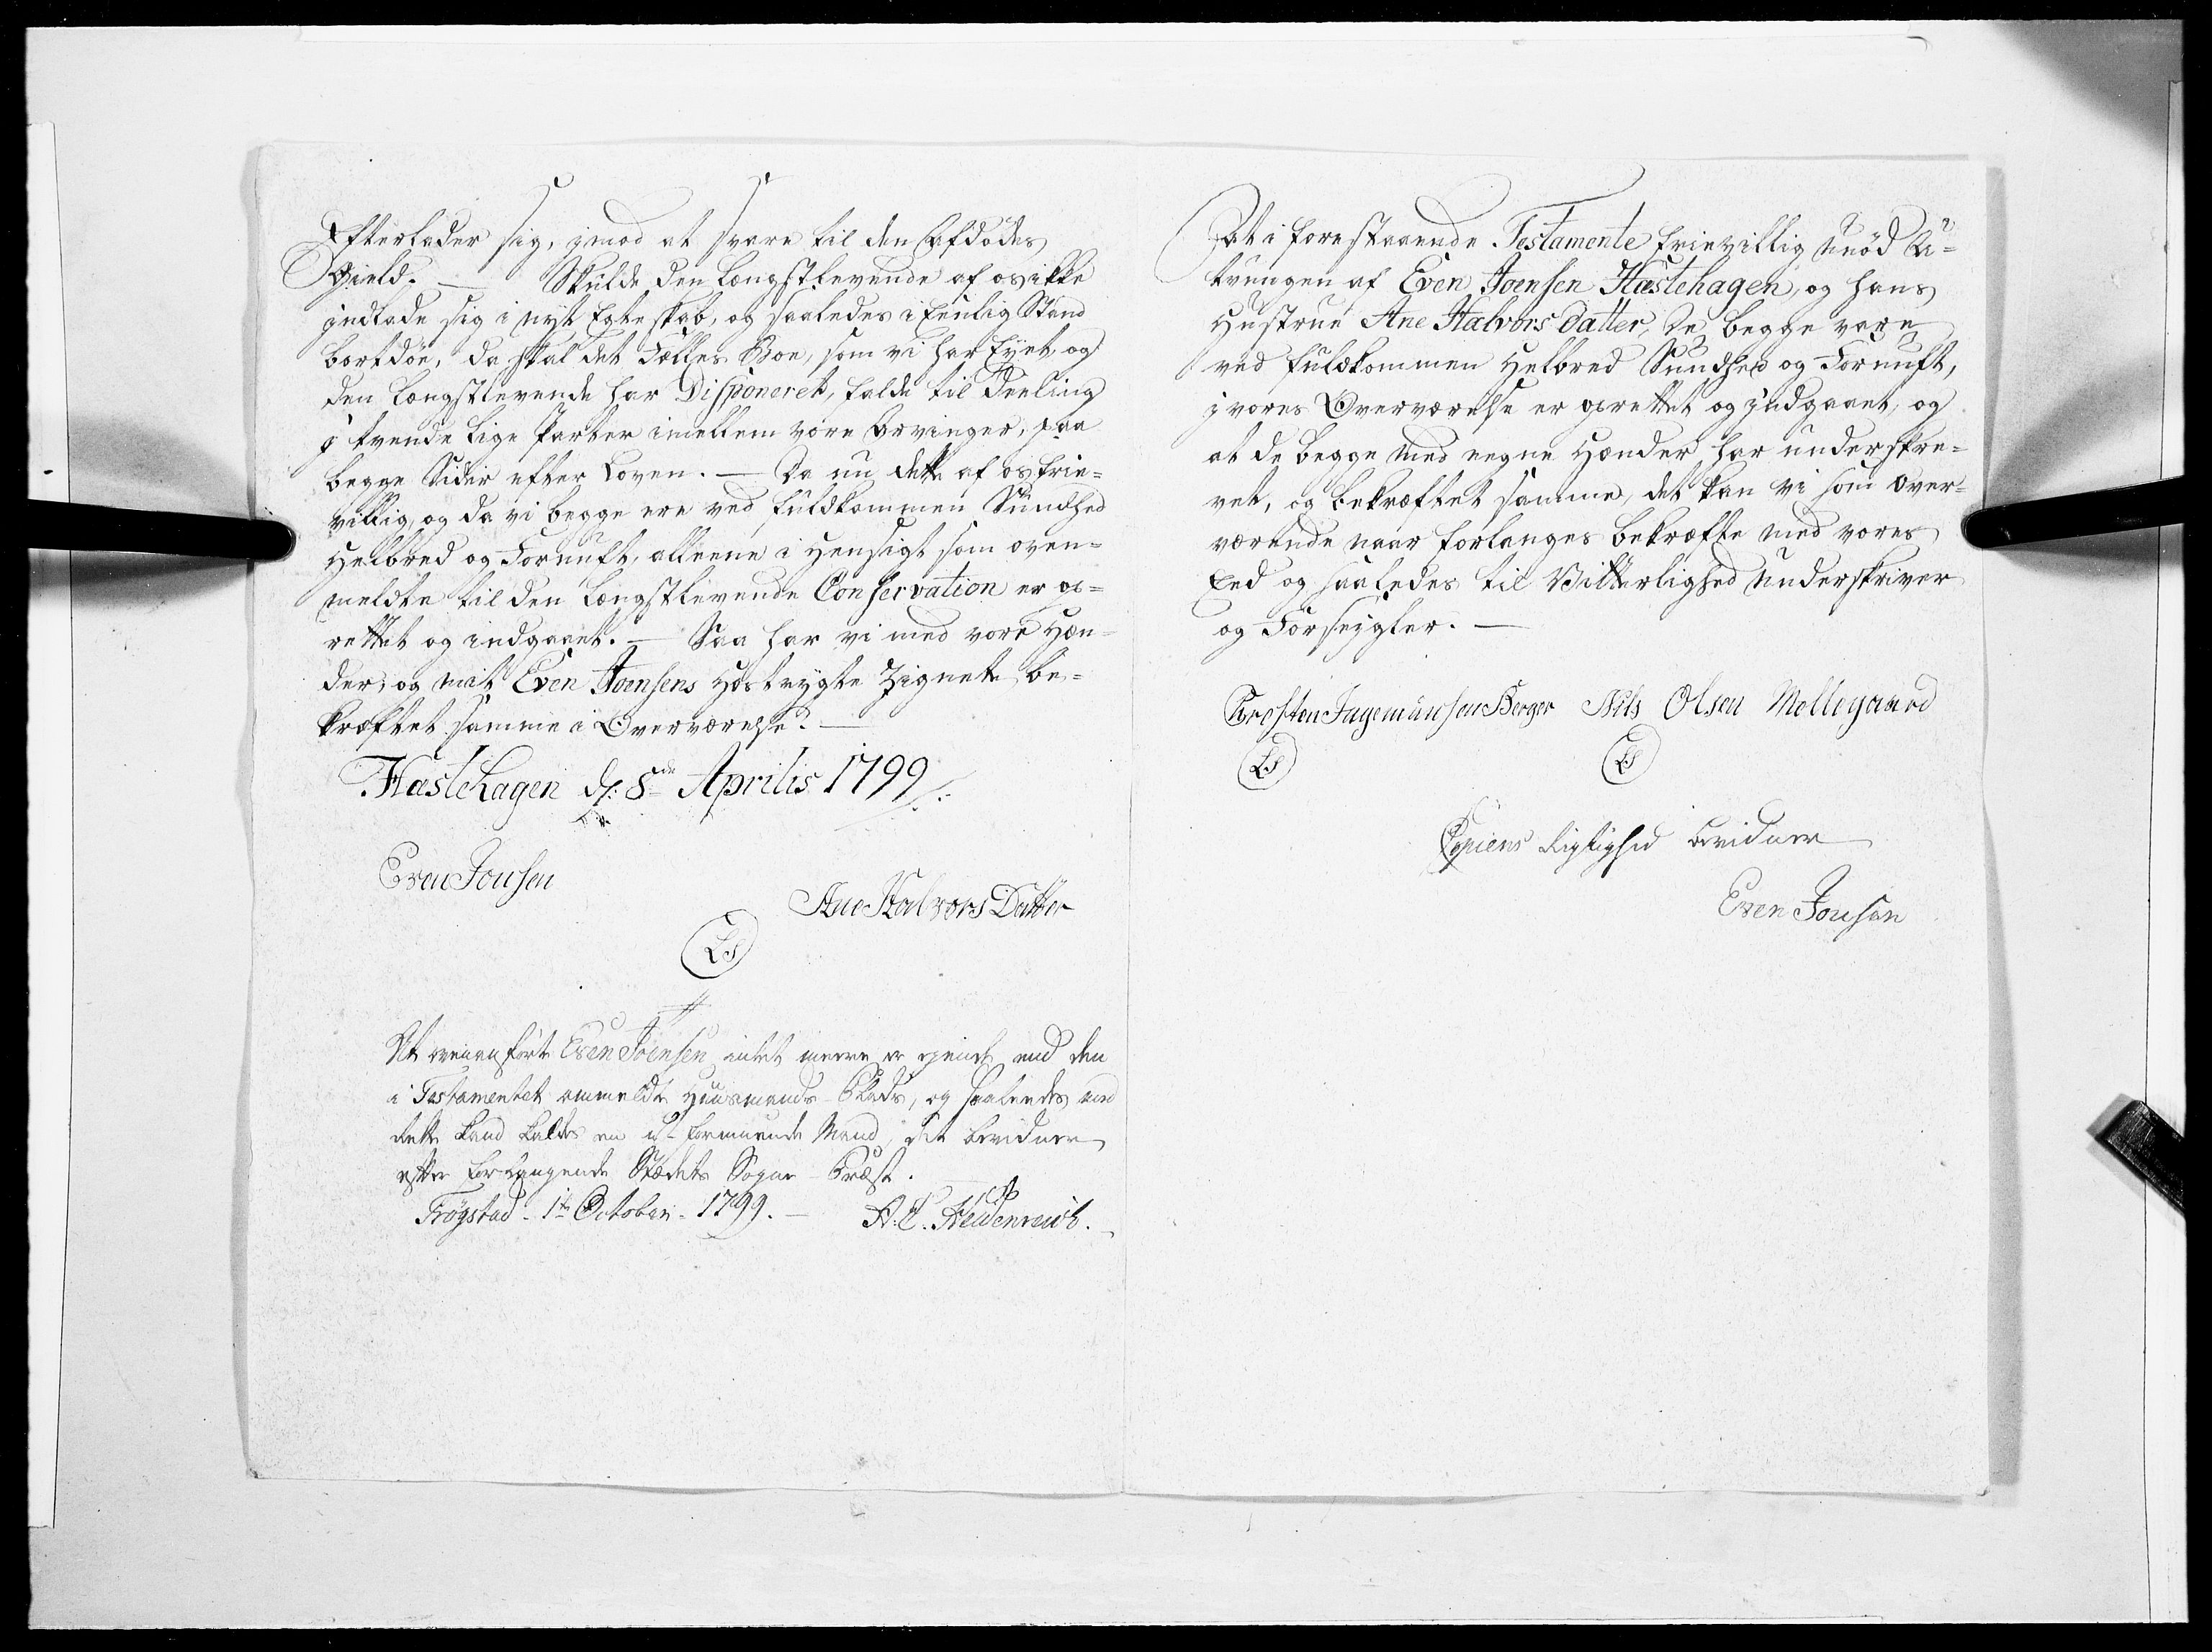 Efterlader sig, imod at svare til den Afdødes
Gield. — Skulde den Længstlevende af os ikke
indlade sig i nyt Egteskab, og saaledes i Eenlig Stand
bortdøe, da skal det Fælles Boe, som vi har Eyet, og
den Længstlevende har Disponeret, falde til Deeling
i tvende lige Parter imellem vore Arvinger, paa
begge Sider efter Loven. — Da nu dette af os frie-
villig, og da vi begge ere ved fuldkommen Sundhed
Helbred og Fornuft, alleene i Hensigt som oven-
meldte til den Længstlevende Conservation er op-
rettet og indgaaet. — Saa har vi med vore Hæn-
der, og mit Even Joensens hostrygte Zignete be-
kræftet samme i Overværelse. —
Hastehagen d: 8de Aprilis 1799
Even Jonsen
Ane Halvors Datter
LS
At ovenanførte Even Joensen intet meere er eyende end den
i Testamentet ommeldte Huusmands-Plads, og saaledes med
dette kand kaldes en u-formuende Mand, det bevidner
efter forlangende Stædets Sogne-Præst.
Trøgstad - 1te October - 1799. — A. C. Heidenreich.
At i forestaaende Testamente frievillig unød U-
tvungen af Even Joensen Hastehagen, og hans
Hustrue Ane Halvors Datter, De begge vare
ved fuldkommen Helbred Sundhed og Fornuft,
i vores Overværelse er oprettet og indgaaet, og
at de begge med eegne Hænder har underskre-
vet, og bekræftet samme, det kan vi som over-
værende naar forlanges bekræfte med vores
Eed og saaledes til Vitterlighed underskriver
og Forseigler. —
Kresten Ingemunsen Berger Nils Olsen Mollegaard
LS LS
Copiens Rigtighed bevidner
Even Jonsen